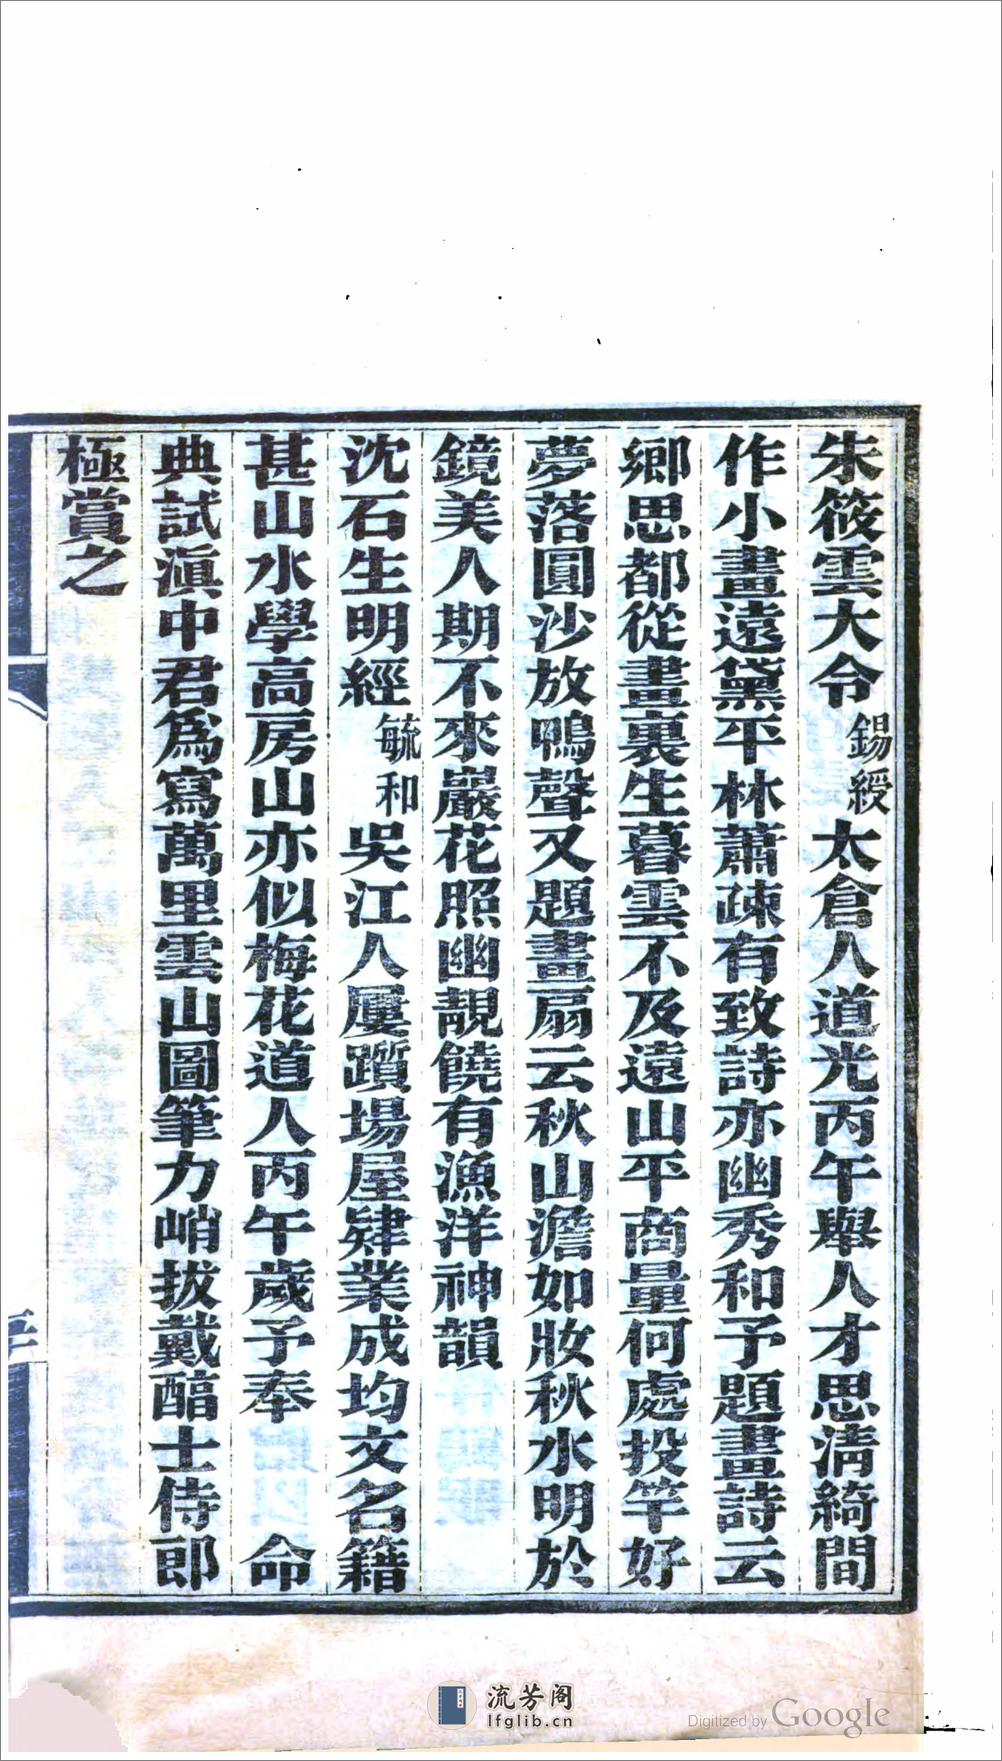 朱筱雲大令錫綬太倉人道光丙午舉人才思清綺間
作小畫遠黛平林蕭疎有致詩亦幽秀和予題畫詩云
鄉思都從畫裏生暮雲不及遠山平商量何處投竿好
夢落圓沙放鴨聲又題畫扇云秋山澹如妝秋水明於
鏡美人期不來巖花照幽靚饒有漁洋神韻
沈石生明經毓和吳江人屢躓場屋肄業成均文名籍
甚山水學高房山亦似梅花道人丙午歲予奉 命
典試滇中君爲寫萬里雲山圖筆力峭拔戴醇士侍郎
極賞之
流芳阁
lfglib.cn
Digitized by Google